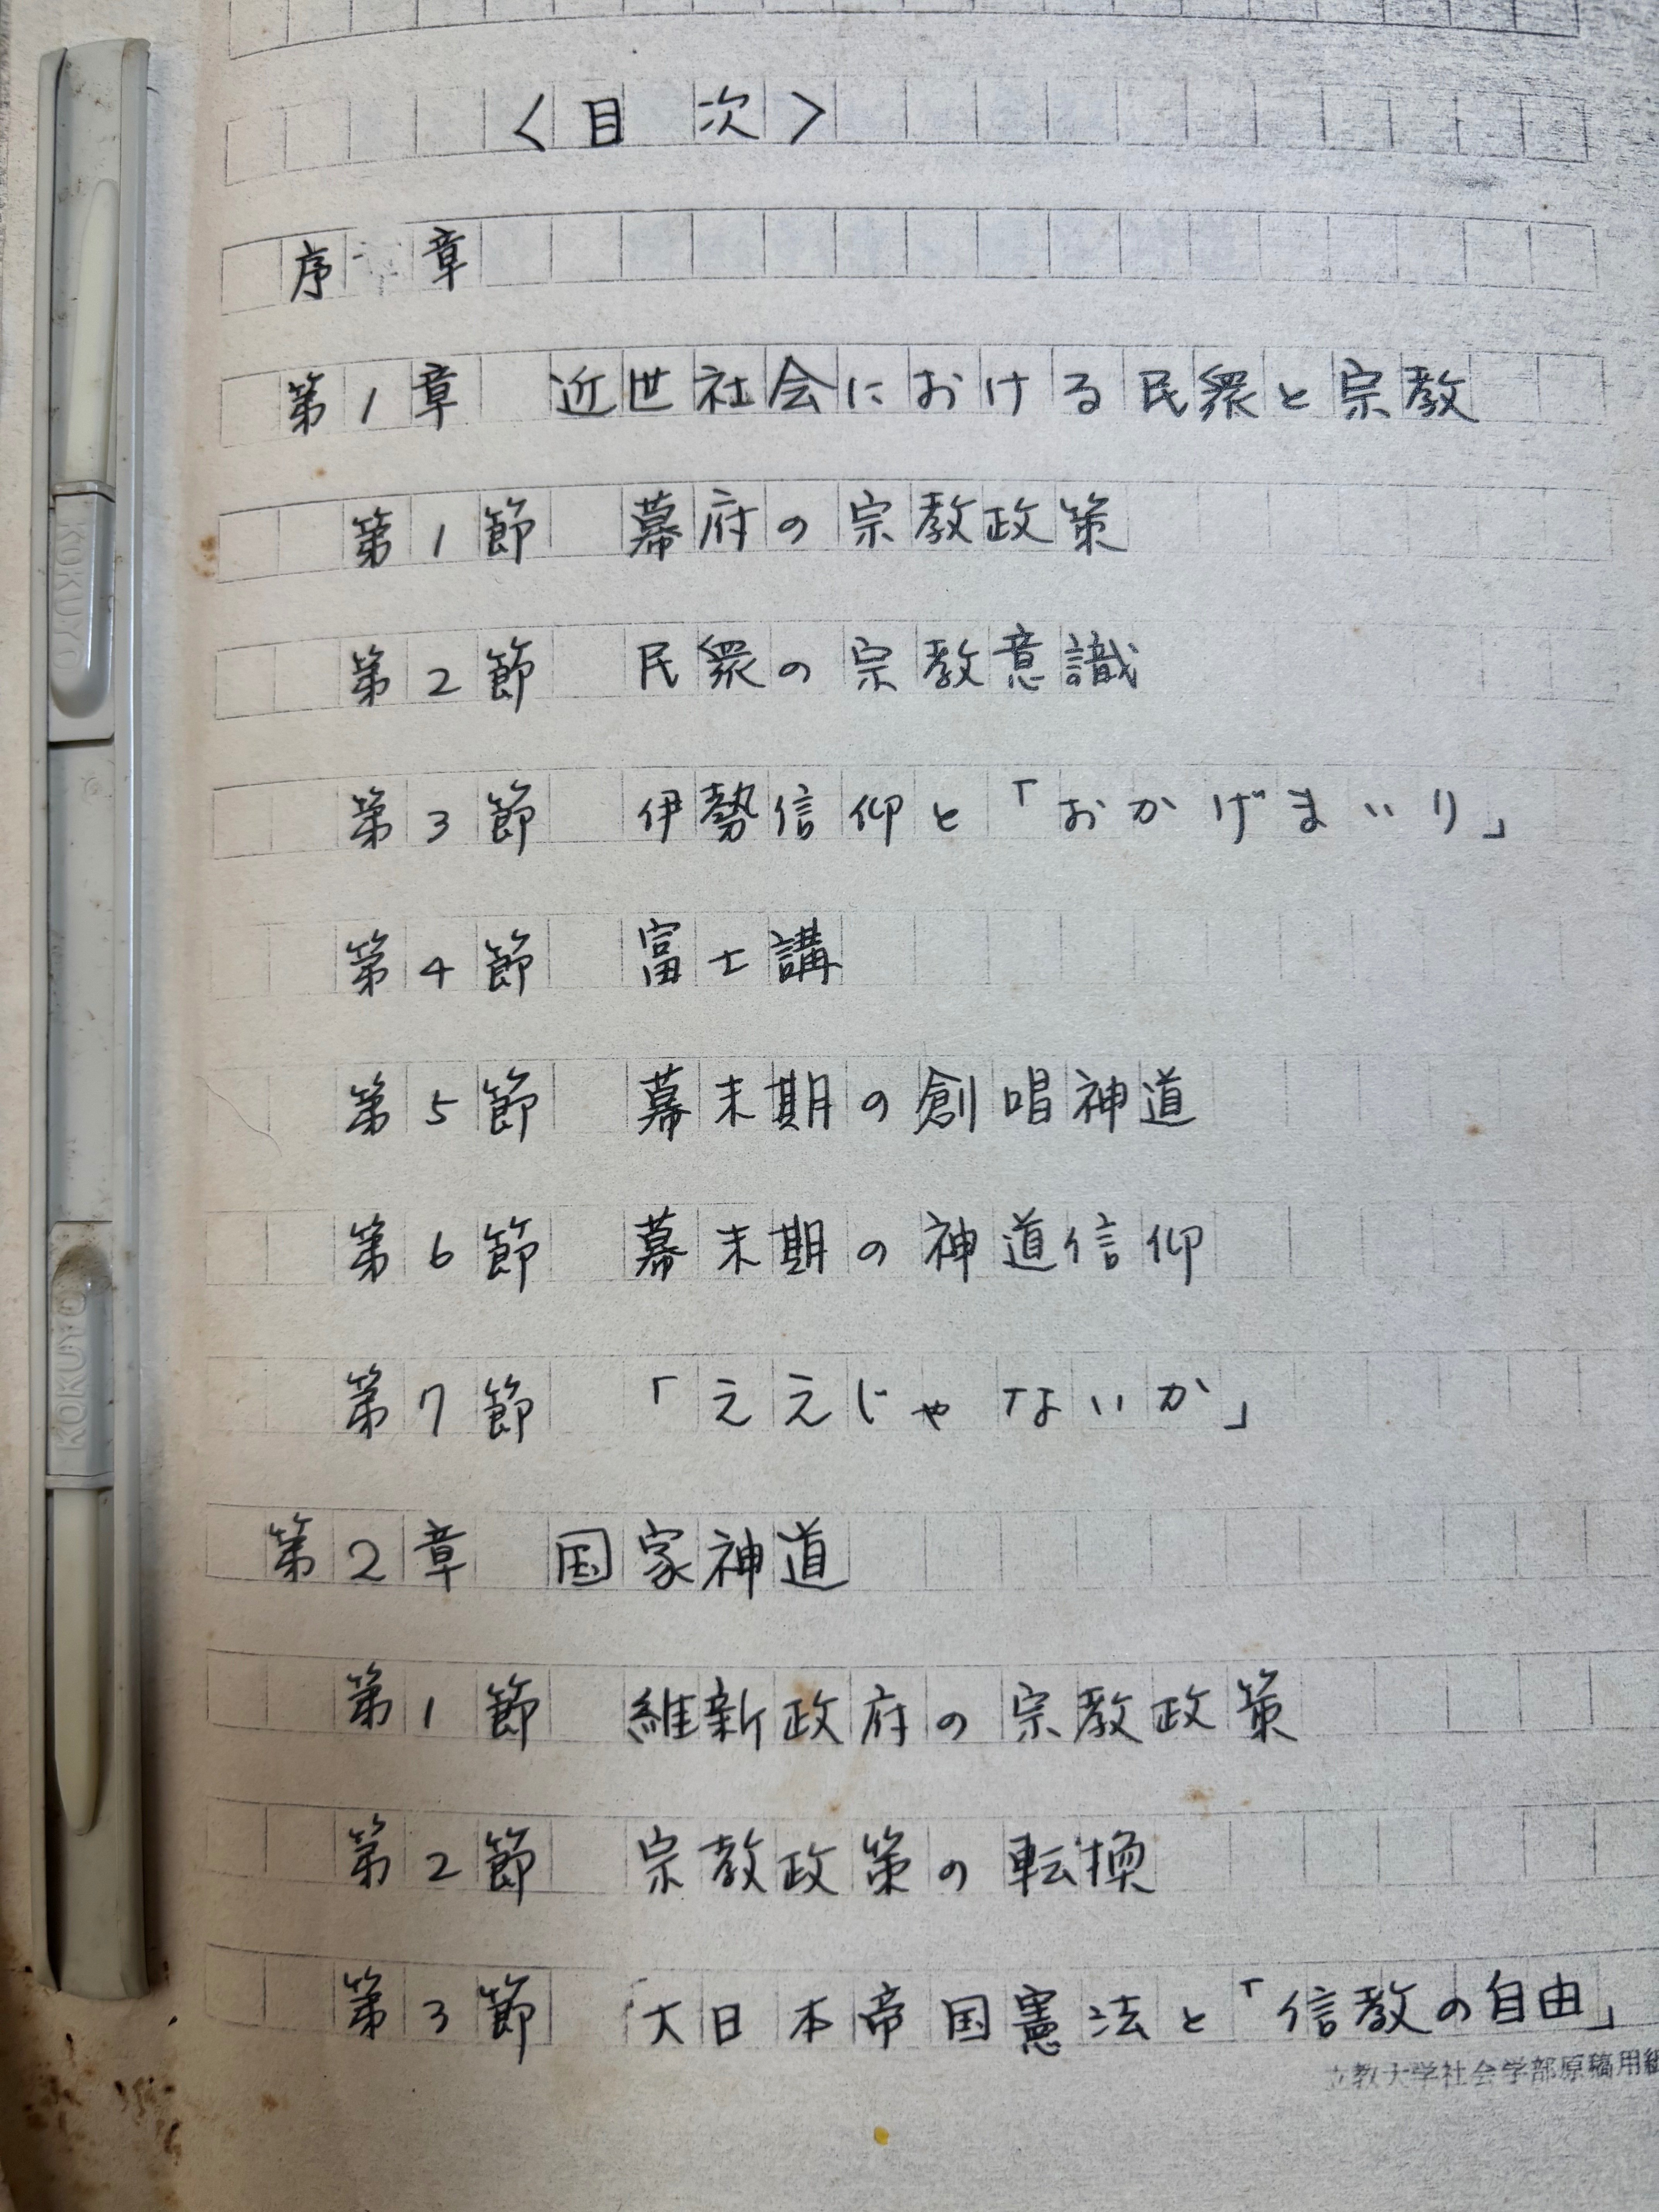 〈目　次〉
序　章
第1章　近世社会における民衆と宗教
第1節　幕府の宗教政策
第2節　民衆の宗教意識
第3節　伊勢信仰と「おかげまいり」
第4節　富士講
第5節　幕末期の創唱神道
第6節　幕末期の神道信仰
第7節　「ええじゃないか」
第2章　国家神道
第1節　維新政府の宗教政策
第2節　宗教政策の転換
第3節　大日本帝国憲法と「信教の自由」
立教大学社会学部原稿用紙
KOKUYO
KOKUYO